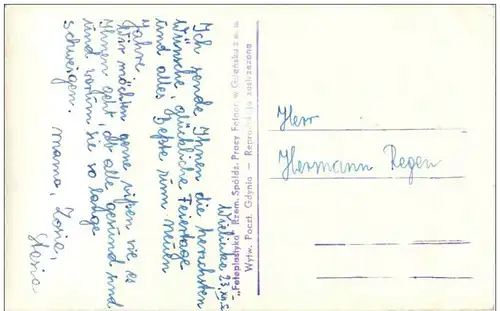 Ich sende Ihnen die herzlichsten
Wünsche, glückliche Feiertage
und alles Beste zum neuen
Jahre.
Wir möchten gerne wissen wie es
Ihnen geht, ob alle gesund sind
und warum sie so lange
schweigen. Mama, Zosia,
Stasia
"Fotoplastykon" Rzem. Spółdz. Pracy Fotogr. w Gdańsku z o. u.
Wytw. Poczt. Gdynia — Reprodukcja zastrzeżona
Herr
Hermann Regen